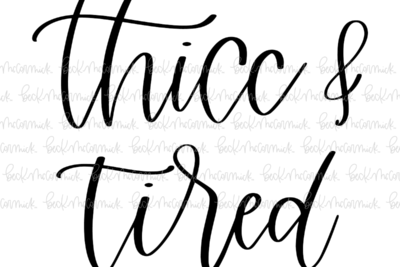 thicc &
tired